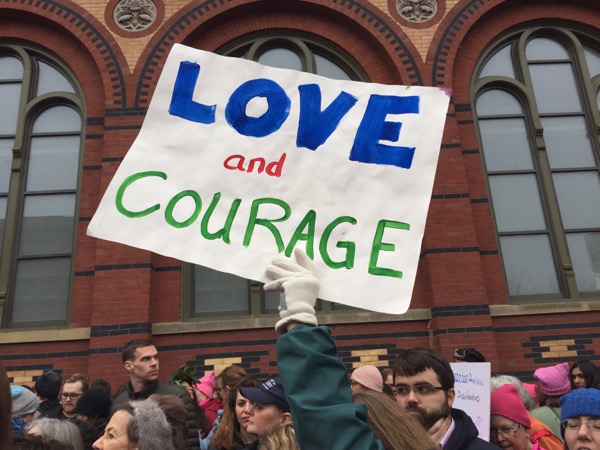 LOVE
and
COURAGE